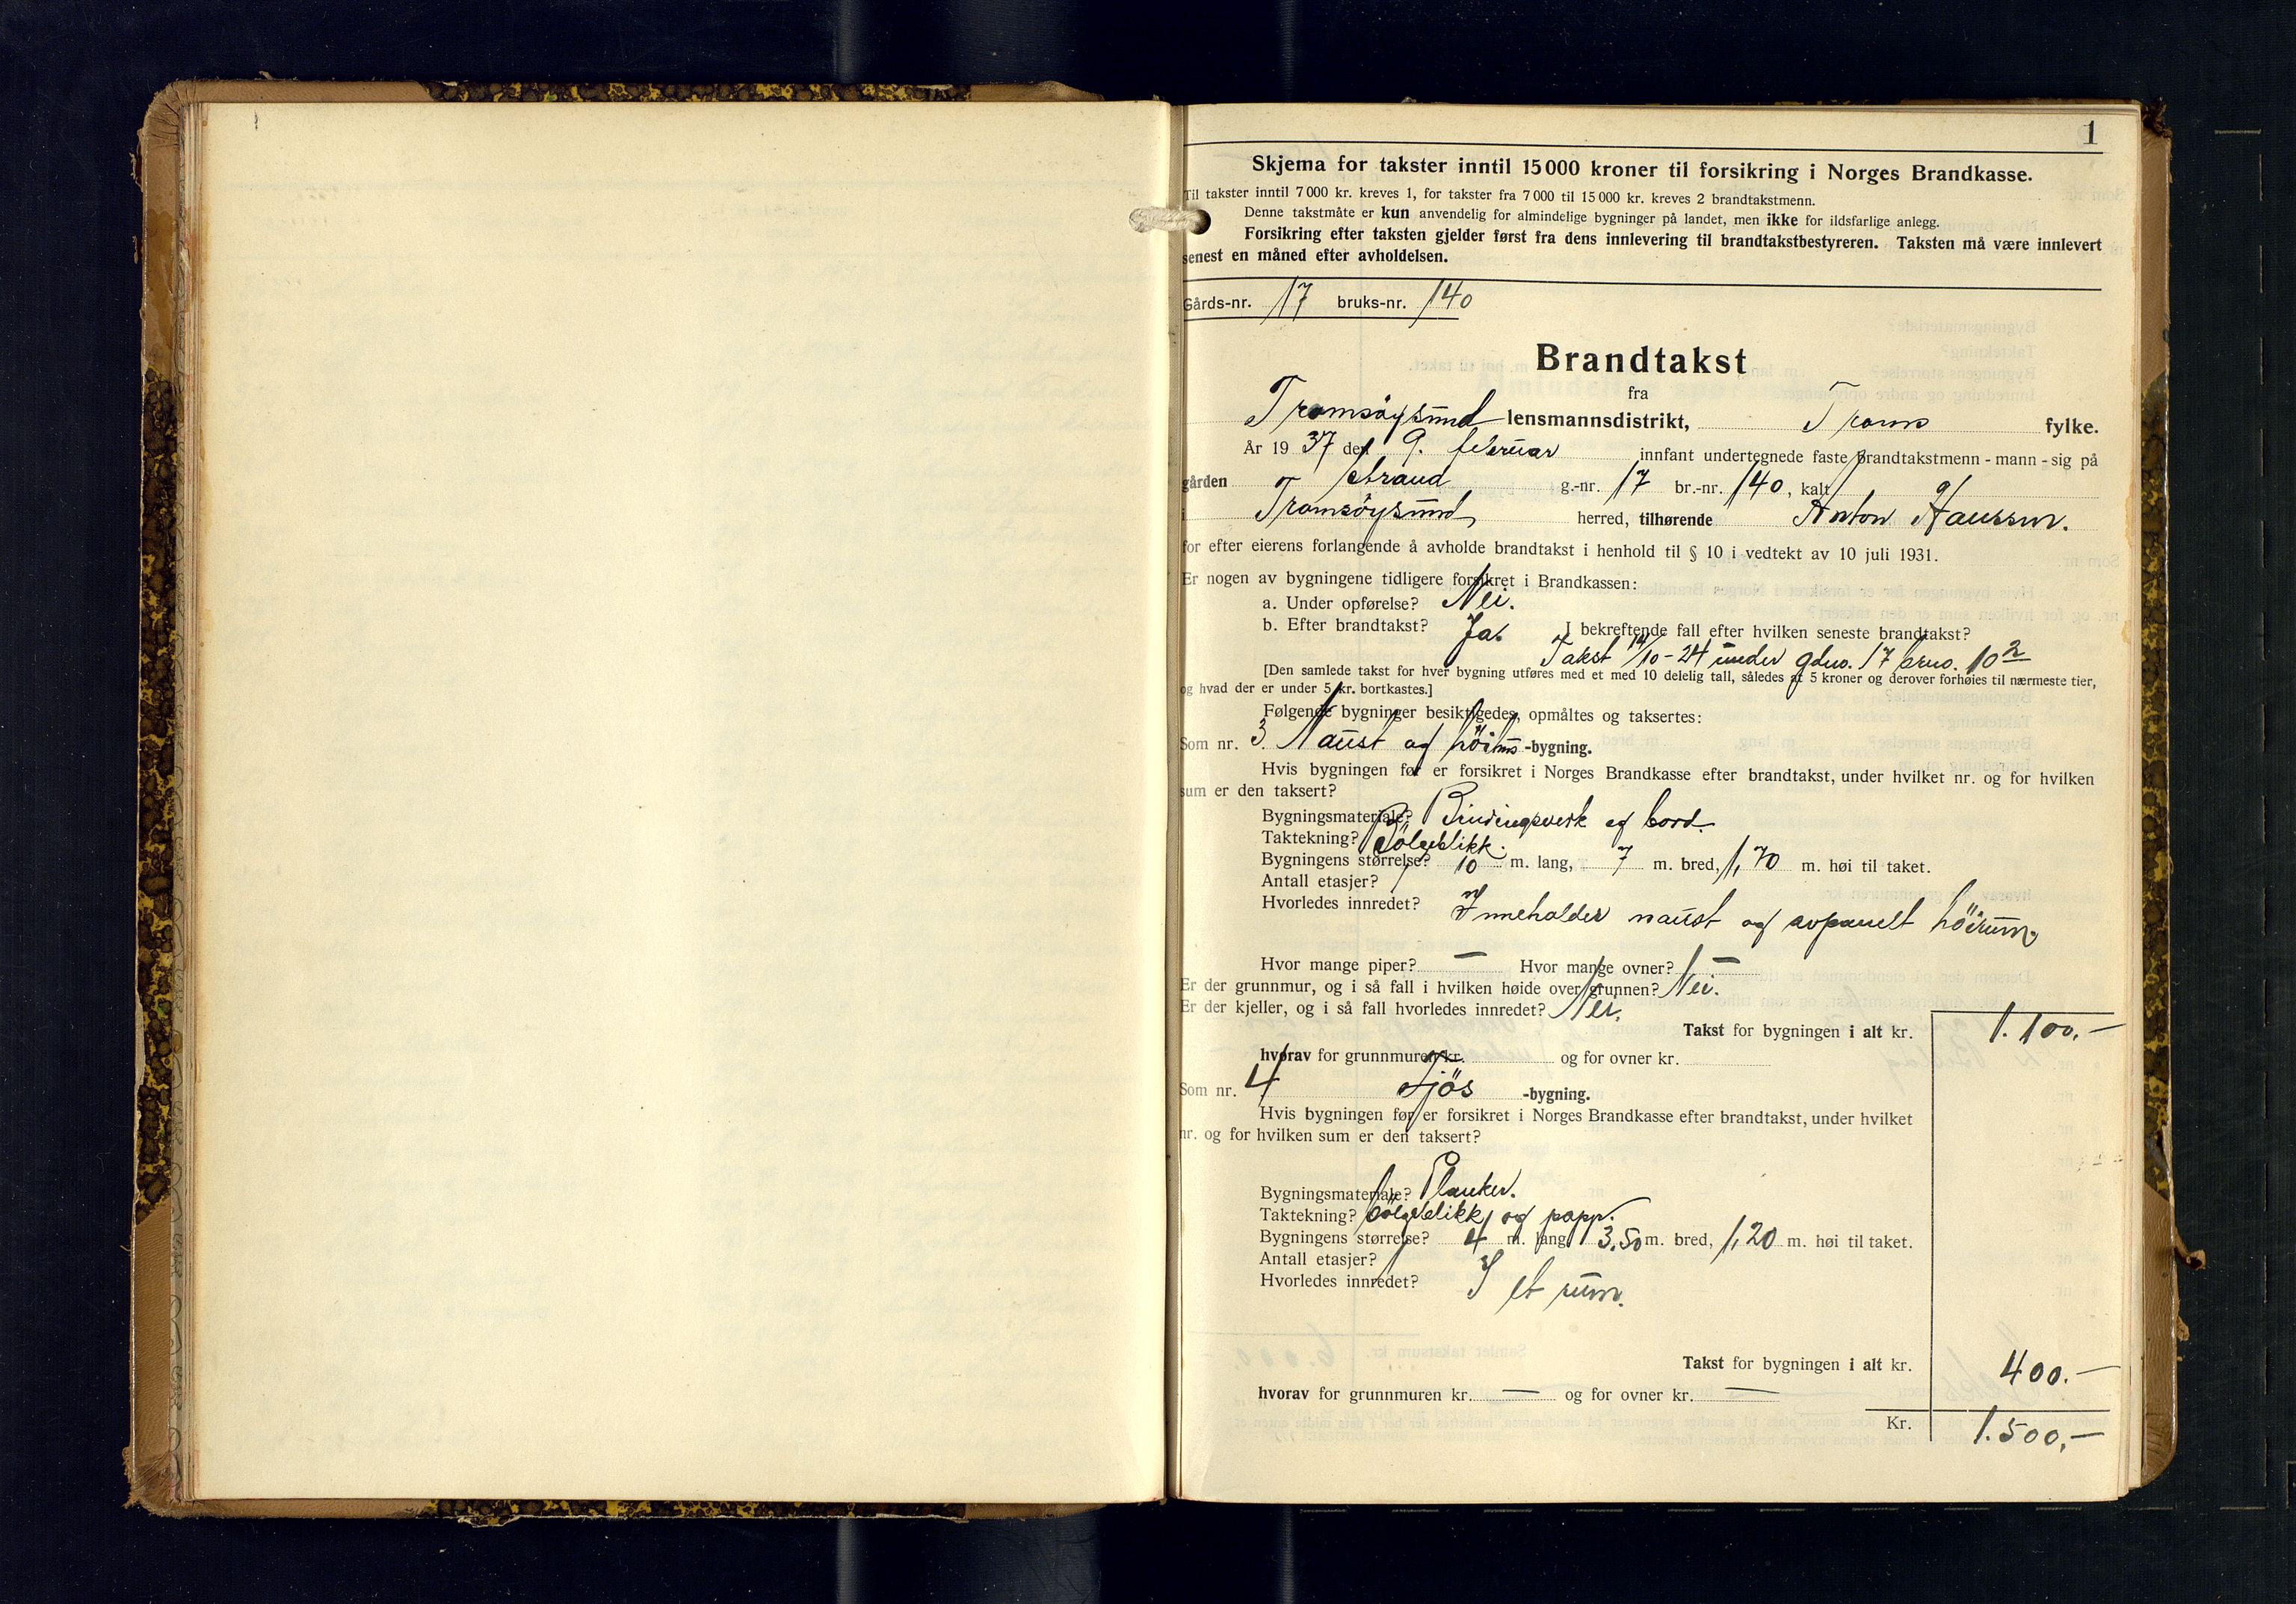 1
Skjema for takster inntil 15 000 kroner til forsikring i Norges Brandkasse.
Til takster inntil 7 000 kr. kreves 1, for takster fra 7 000 til 15 000 kr. kreves 2 brandtakstmenn.
Denne takstmåte er kun anvendelig for almindelige bygninger på landet, men ikke for ildsfarlige anlegg.
Forsikring efter taksten gjelder først fra dens innlevering til brandtakstbestyreren. Taksten må være innlevert
senest en måned efter avholdelsen.
Gårds-nr. 17 bruks-nr. 140
Brandtakst
fra
Tromsöysund lensmannsdistrikt, Troms fylke.
År 19 37 den 9. februar innfant undertegnede faste brandtakstmenn - mann - sig på
gården Strand g.-nr. 17 br.-nr. 140, kalt
i Tromsöysund herred, tilhørende Anton Hanssen.
for efter eierens forlangende å avholde brandtakst i henhold til § 10 i vedtekt av 10 juli 1931.
Er nogen av bygningene tidligere forsikret i Brandkassen:
a. Under opførelse? Nei.
b. Efter brandtakst? Ja. I bekreftende fall efter hvilken seneste brandtakst?
Takst 14/10-24 under gdno. 17 brno. 10
[Den samlede takst for hver bygning utføres med et med 10 delelig tall, således at 5 kroner og derover forhøies til nærmeste tier,
og hvad der er under 5 kr. bortkastes.]
Følgende bygninger besiktigedes, opmåltes og taksertes:
Som nr. 3. Naust og höihus-bygning.
Hvis bygningen før er forsikret i Norges Brandkasse efter brandtakst, under hvilket nr. og for hvilken
sum er den taksert?
Bygningsmateriale? Bindingsverk og bord.
Taktekning? Bölgeblikk.
Bygningens størrelse? 10 m. lang, 7 m. bred, 1,70 m. høi til taket.
Antall etasjer? 1
Hvorledes innredet? Inneholder naust og avpanelt höirum.
Hvor mange piper? — Hvor mange ovner? —
Er der grunnmur, og i så fall i hvilken høide over grunnen? Nei.
Er der kjeller, og i så fall hvorledes innredet? Nei.
Takst for bygningen i alt kr. 1.100.—
hvorav for grunnmuren kr. og for ovner kr.
Som nr. 4 Fjös -bygning.
Hvis bygningen før er forsikret i Norges Brandkasse efter brandtakst, under hvilket
nr. og for hvilken sum er den taksert?
Bygningsmateriale? Planker.
Taktekning? Bölgeblikk og papp.
Bygningens størrelse? 4 m. lang, 3.50 m. bred, 1,20 m. høi til taket.
Antall etasjer? 1
Hvorledes innredet? I et rum.
Takst for bygningen i alt kr. 400.—
hvorav for grunnmuren kr. — og for ovner kr. —
Kr. 1.500,—